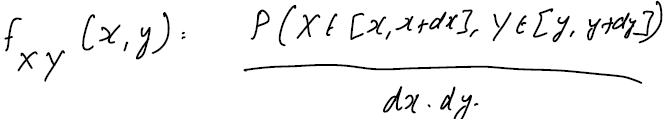 f_{XY}(x,y): P(X ∈ [x, x+dx], Y ∈ [y, y+dy])
dx. dy.